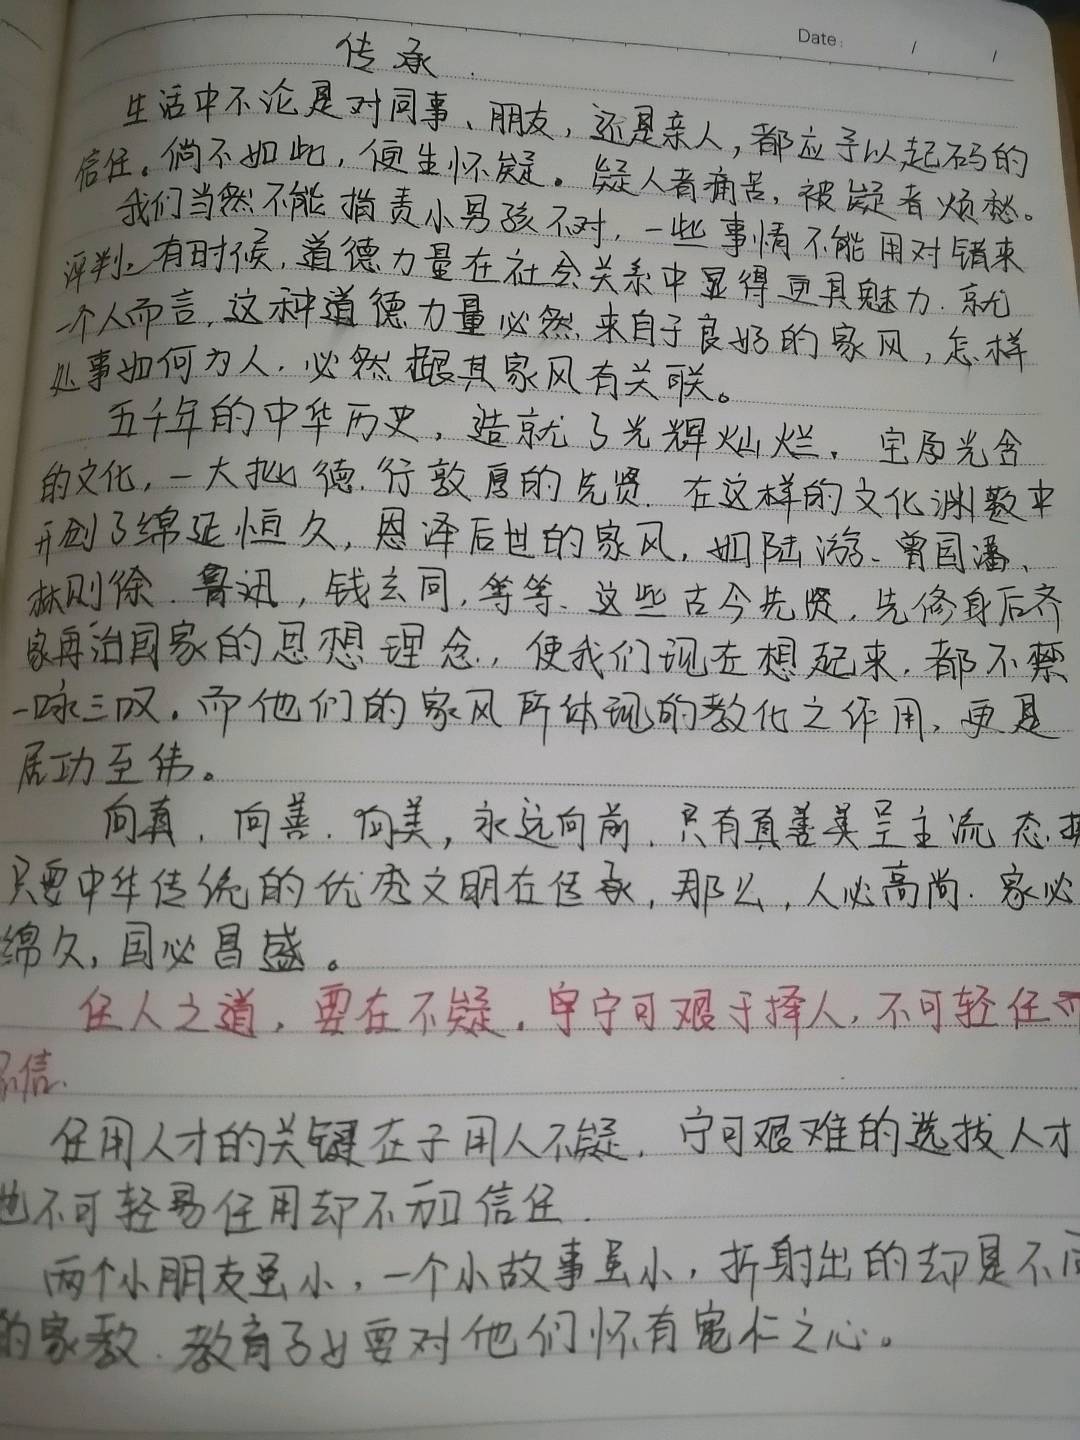 Date: / /
传承.
生活中不论是对同事、朋友，还是亲人，都应予以起码的
信任。倘不如此，便生怀疑。疑人者痛苦，被疑者烦愁。
我们当然不能指责小男孩不对，一些事情不能用对错来
评判。有时候，道德力量在社会关系中显得更具魅力.就
一个人而言，这种道德力量必然来自于良好的家风，怎样
处事如何为人.必然跟其家风有关联。
五千年的中华历史，造就了光辉灿烂，光含
的文化，一大批德.行敦厚的先贤.在这样的文化渊数中
开创了绵延恒久，恩泽后世的家风，如陆游、曾国潘、
林则徐.鲁迅，钱玄同，等等、这些古今先贤，先修身后齐
家再治国家的思想理念.，使我们现在想起来，都不禁
一咏三叹。而他们的家风所体现的教化之作用，更是
居功至伟。
向真，向善.向美，永远向前.只有真善美呈主流态.
只要中华传统的优秀文明在传承，那么，人必高尚.家必
绵久，国必昌盛。
任人之道，要在不疑，宁可艰于择人，不可轻任而
不信.
任用人才的关键在于用人不疑，宁可艰难的选拔人才
也不可轻易任用却不加信任.
两个小朋友虽小，一个小故事虽小，折射出的却是不同
的家教.教育子女要对他们怀有宽仁之心。